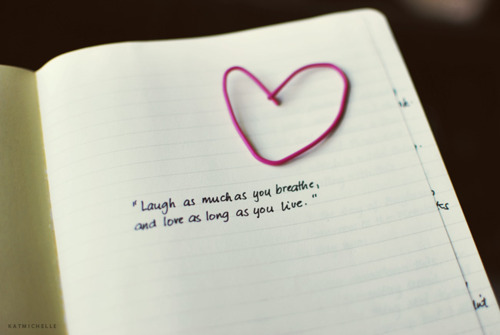 "Laugh as much as you breathe,
and love as long as you live."
KATMICHELLE